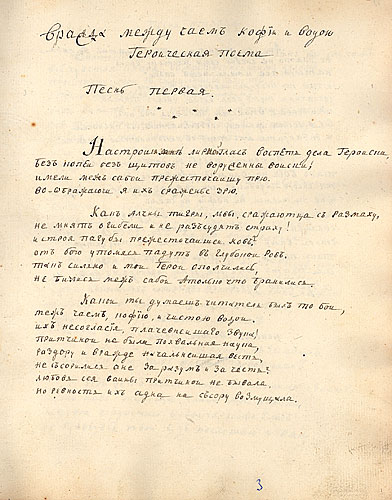 Вражда между чаемъ кофїи и водою
Героическая поема
Песнь первая.
Настроилъ лирной гласъ воспеть дела Геройски
безъ копеи безъ щитовъ не воруженны воиски
имели межъ сабои прежесточаишу прю.
во-ображаю я ихъ сраженье зрю.
Какъ алчны тигры, львы, сражаютца съ размаху,
не мнятъ о гибели и не разсудятъ страху!
и строя пагубы прежесточаиши ковы
отъ бою утомясь падутъ въ глубокои ровъ.
такъ сильно и мои Герои ополчились,
не бились межъ сабои а только что бранились.
Какои ты думаешъ читатель былъ то бои,
межъ чаемъ, кофїю, и чистою водои.
ихъ несогласїя, плачевнеишаго звука,
притчинои не были похвальная наука,
раздору и вражде началнеишая весть,
не спорились оне за разумъ и за честь.
любовь сея воины притчинои не бывала,
но ревность ихъ адна на ссору возмущала.
3